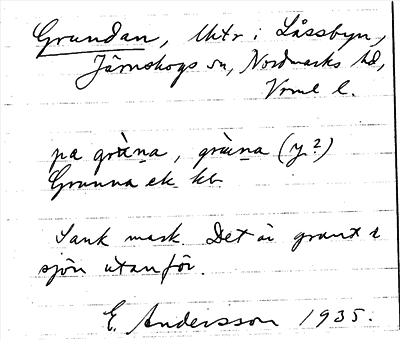 Grundan, Uktr i Låssbyn,
Järnskogs sn, Nordmarks hd,
Vrml l.
pa grùna, grùna (y?)
Grunna ek. kb.
Sank mark. Det är grunt i
sjön utanför.
E. Andersson 1935.